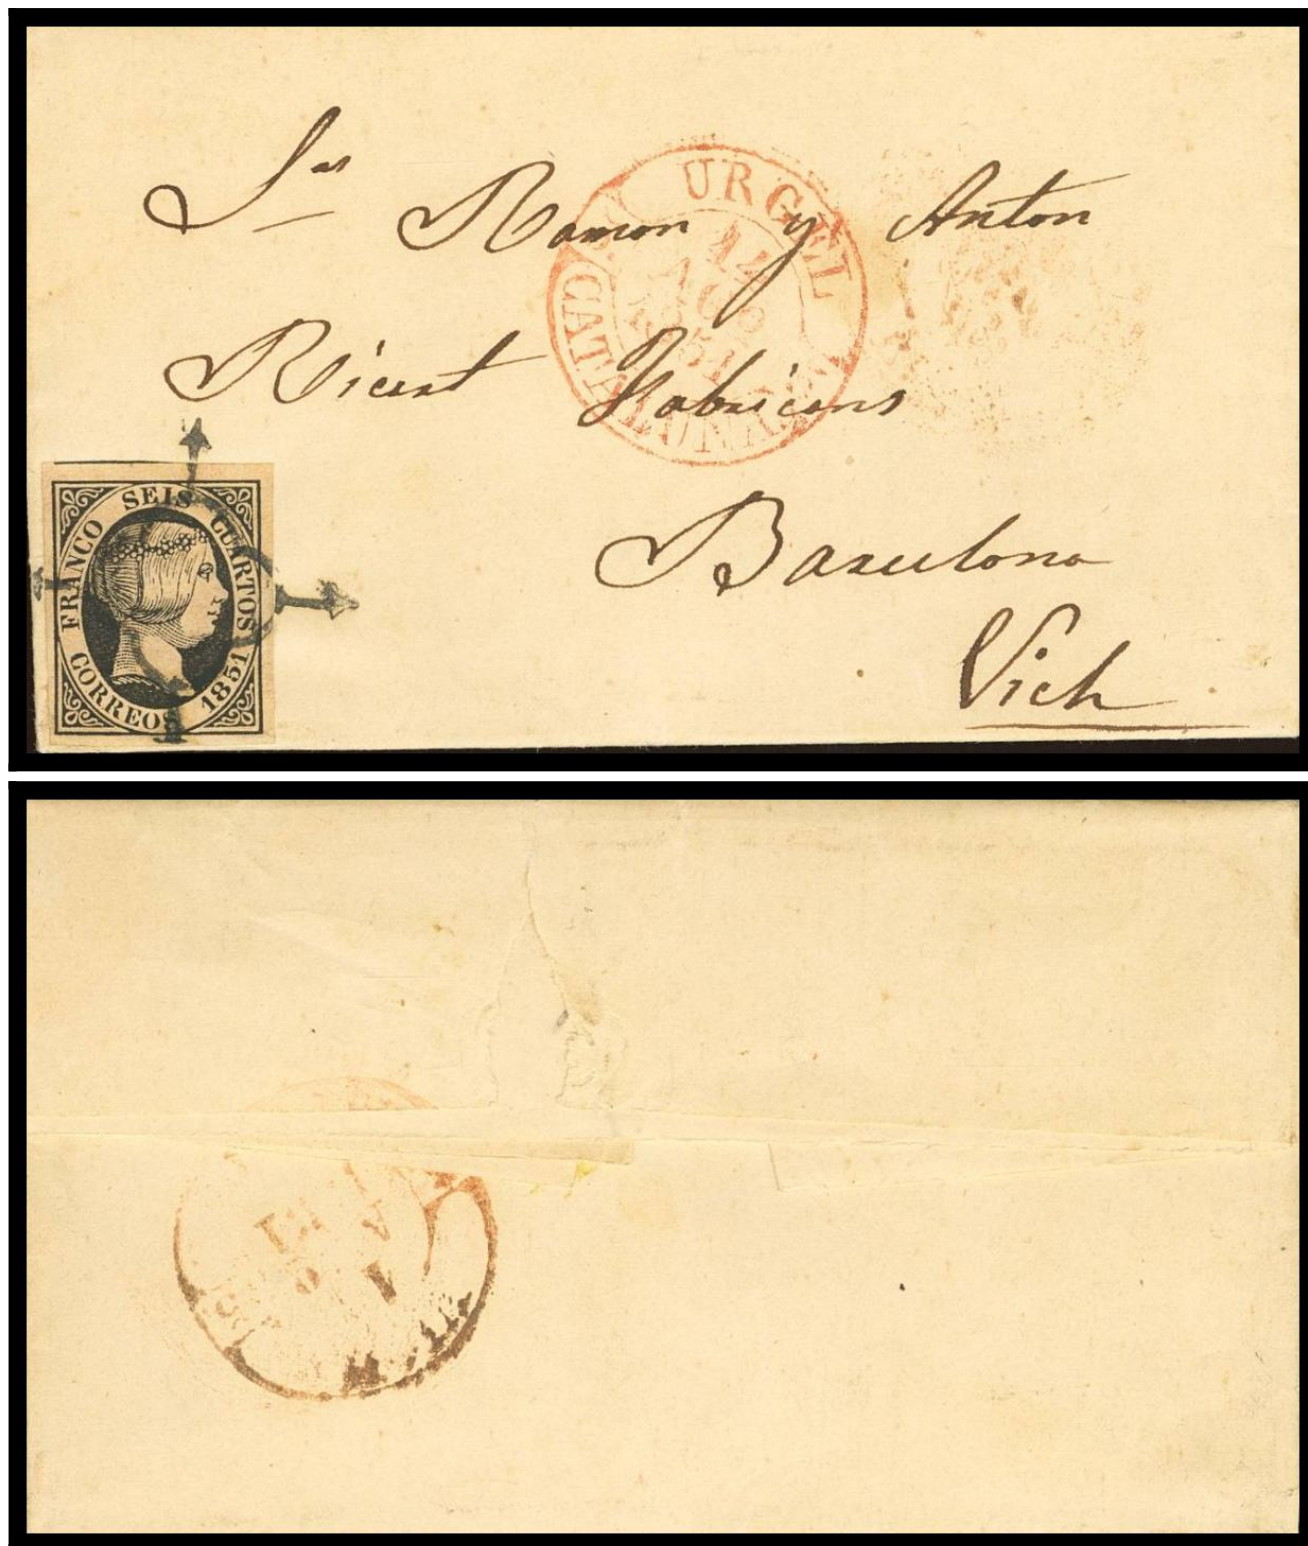 Sres Ramon y Anton
Ricart Fabricans
Barcelona
Vich
URGEL
14
AGO
1851
CATALUÑA
FRANCO SEIS CUARTOS
CORREOS 1851